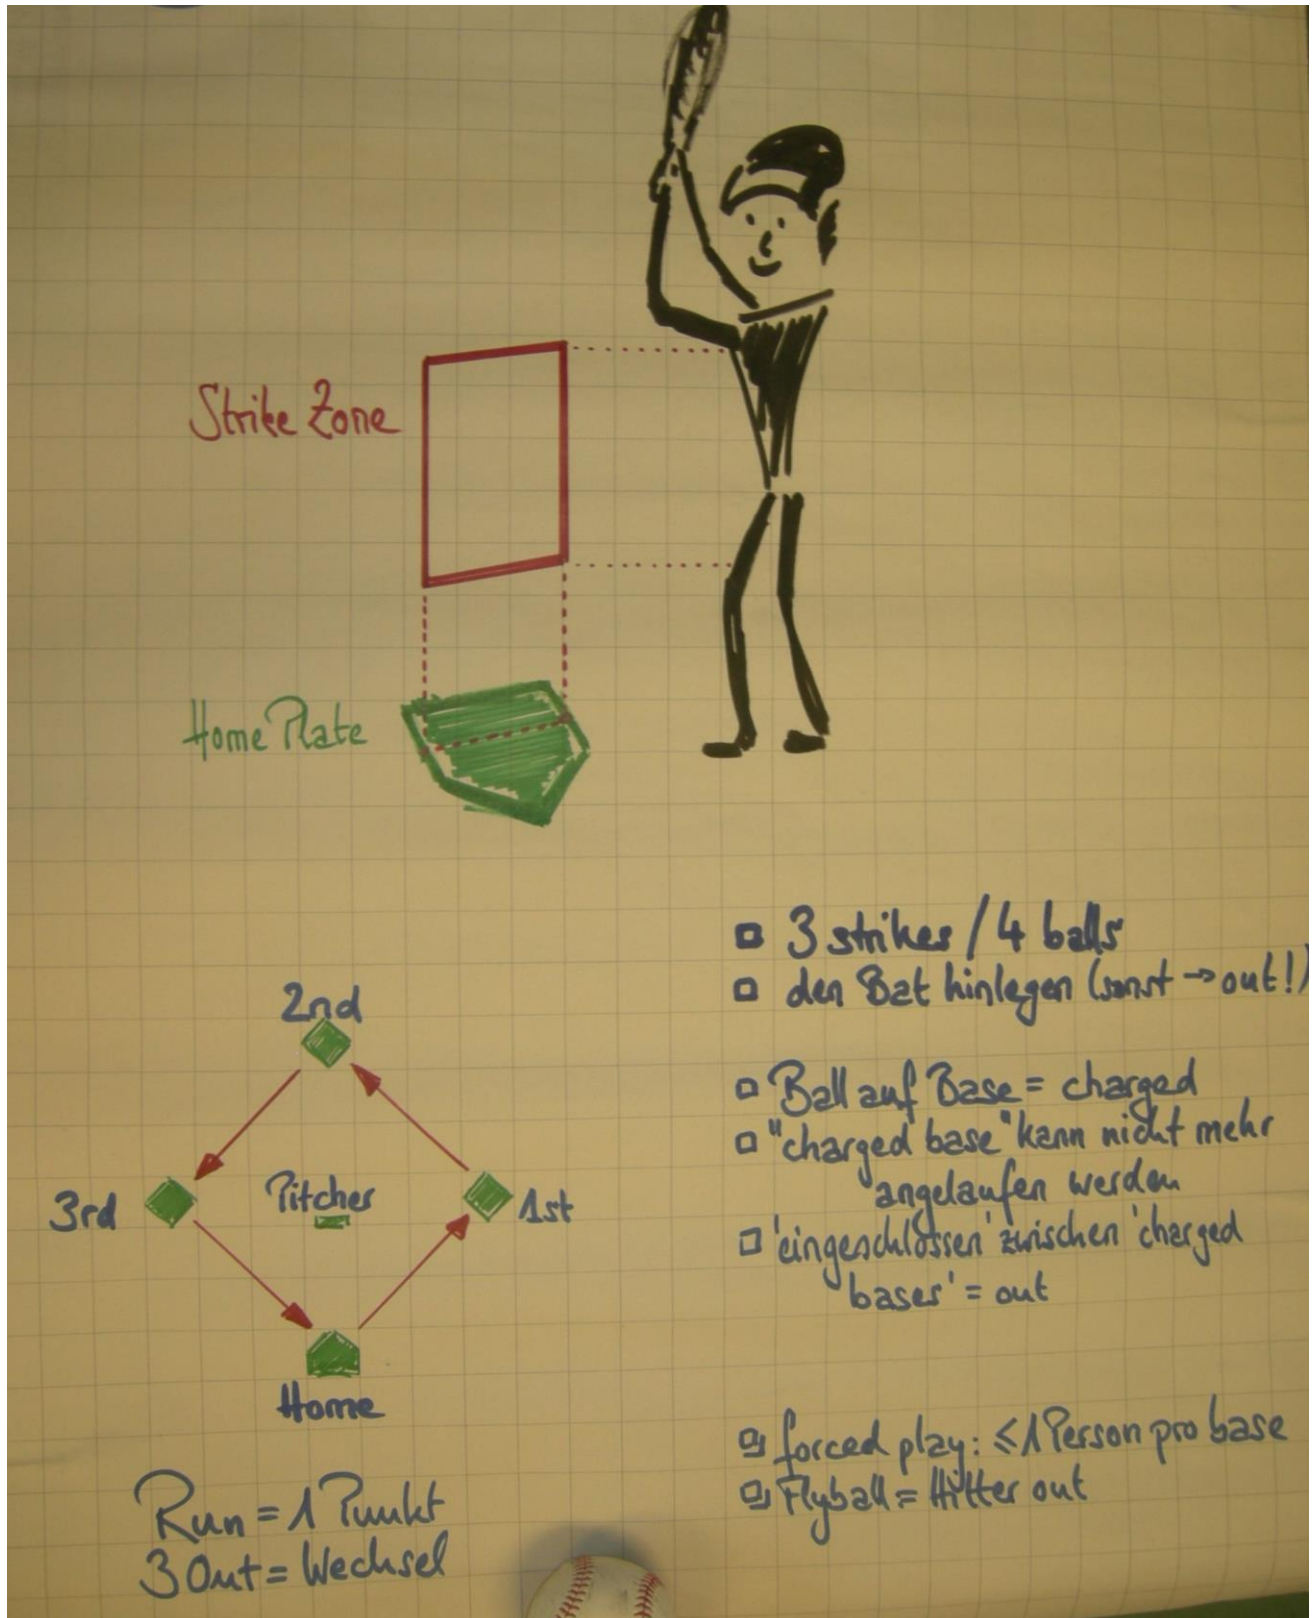 Strike Zone
Home Plate
2nd
3rd
Pitcher
1st
Home
Run = 1 Punkt
3 Out = Wechsel
3 strikes / 4 balls
den Bat hinlegen (sonst → out!)
Ball auf Base = charged
"charged base" kann nicht mehr
angelaufen werden
'eingeschlossen' zwischen 'charged
bases' = out
forced play: ≤ 1 Person pro base
Flyball = Hitter out